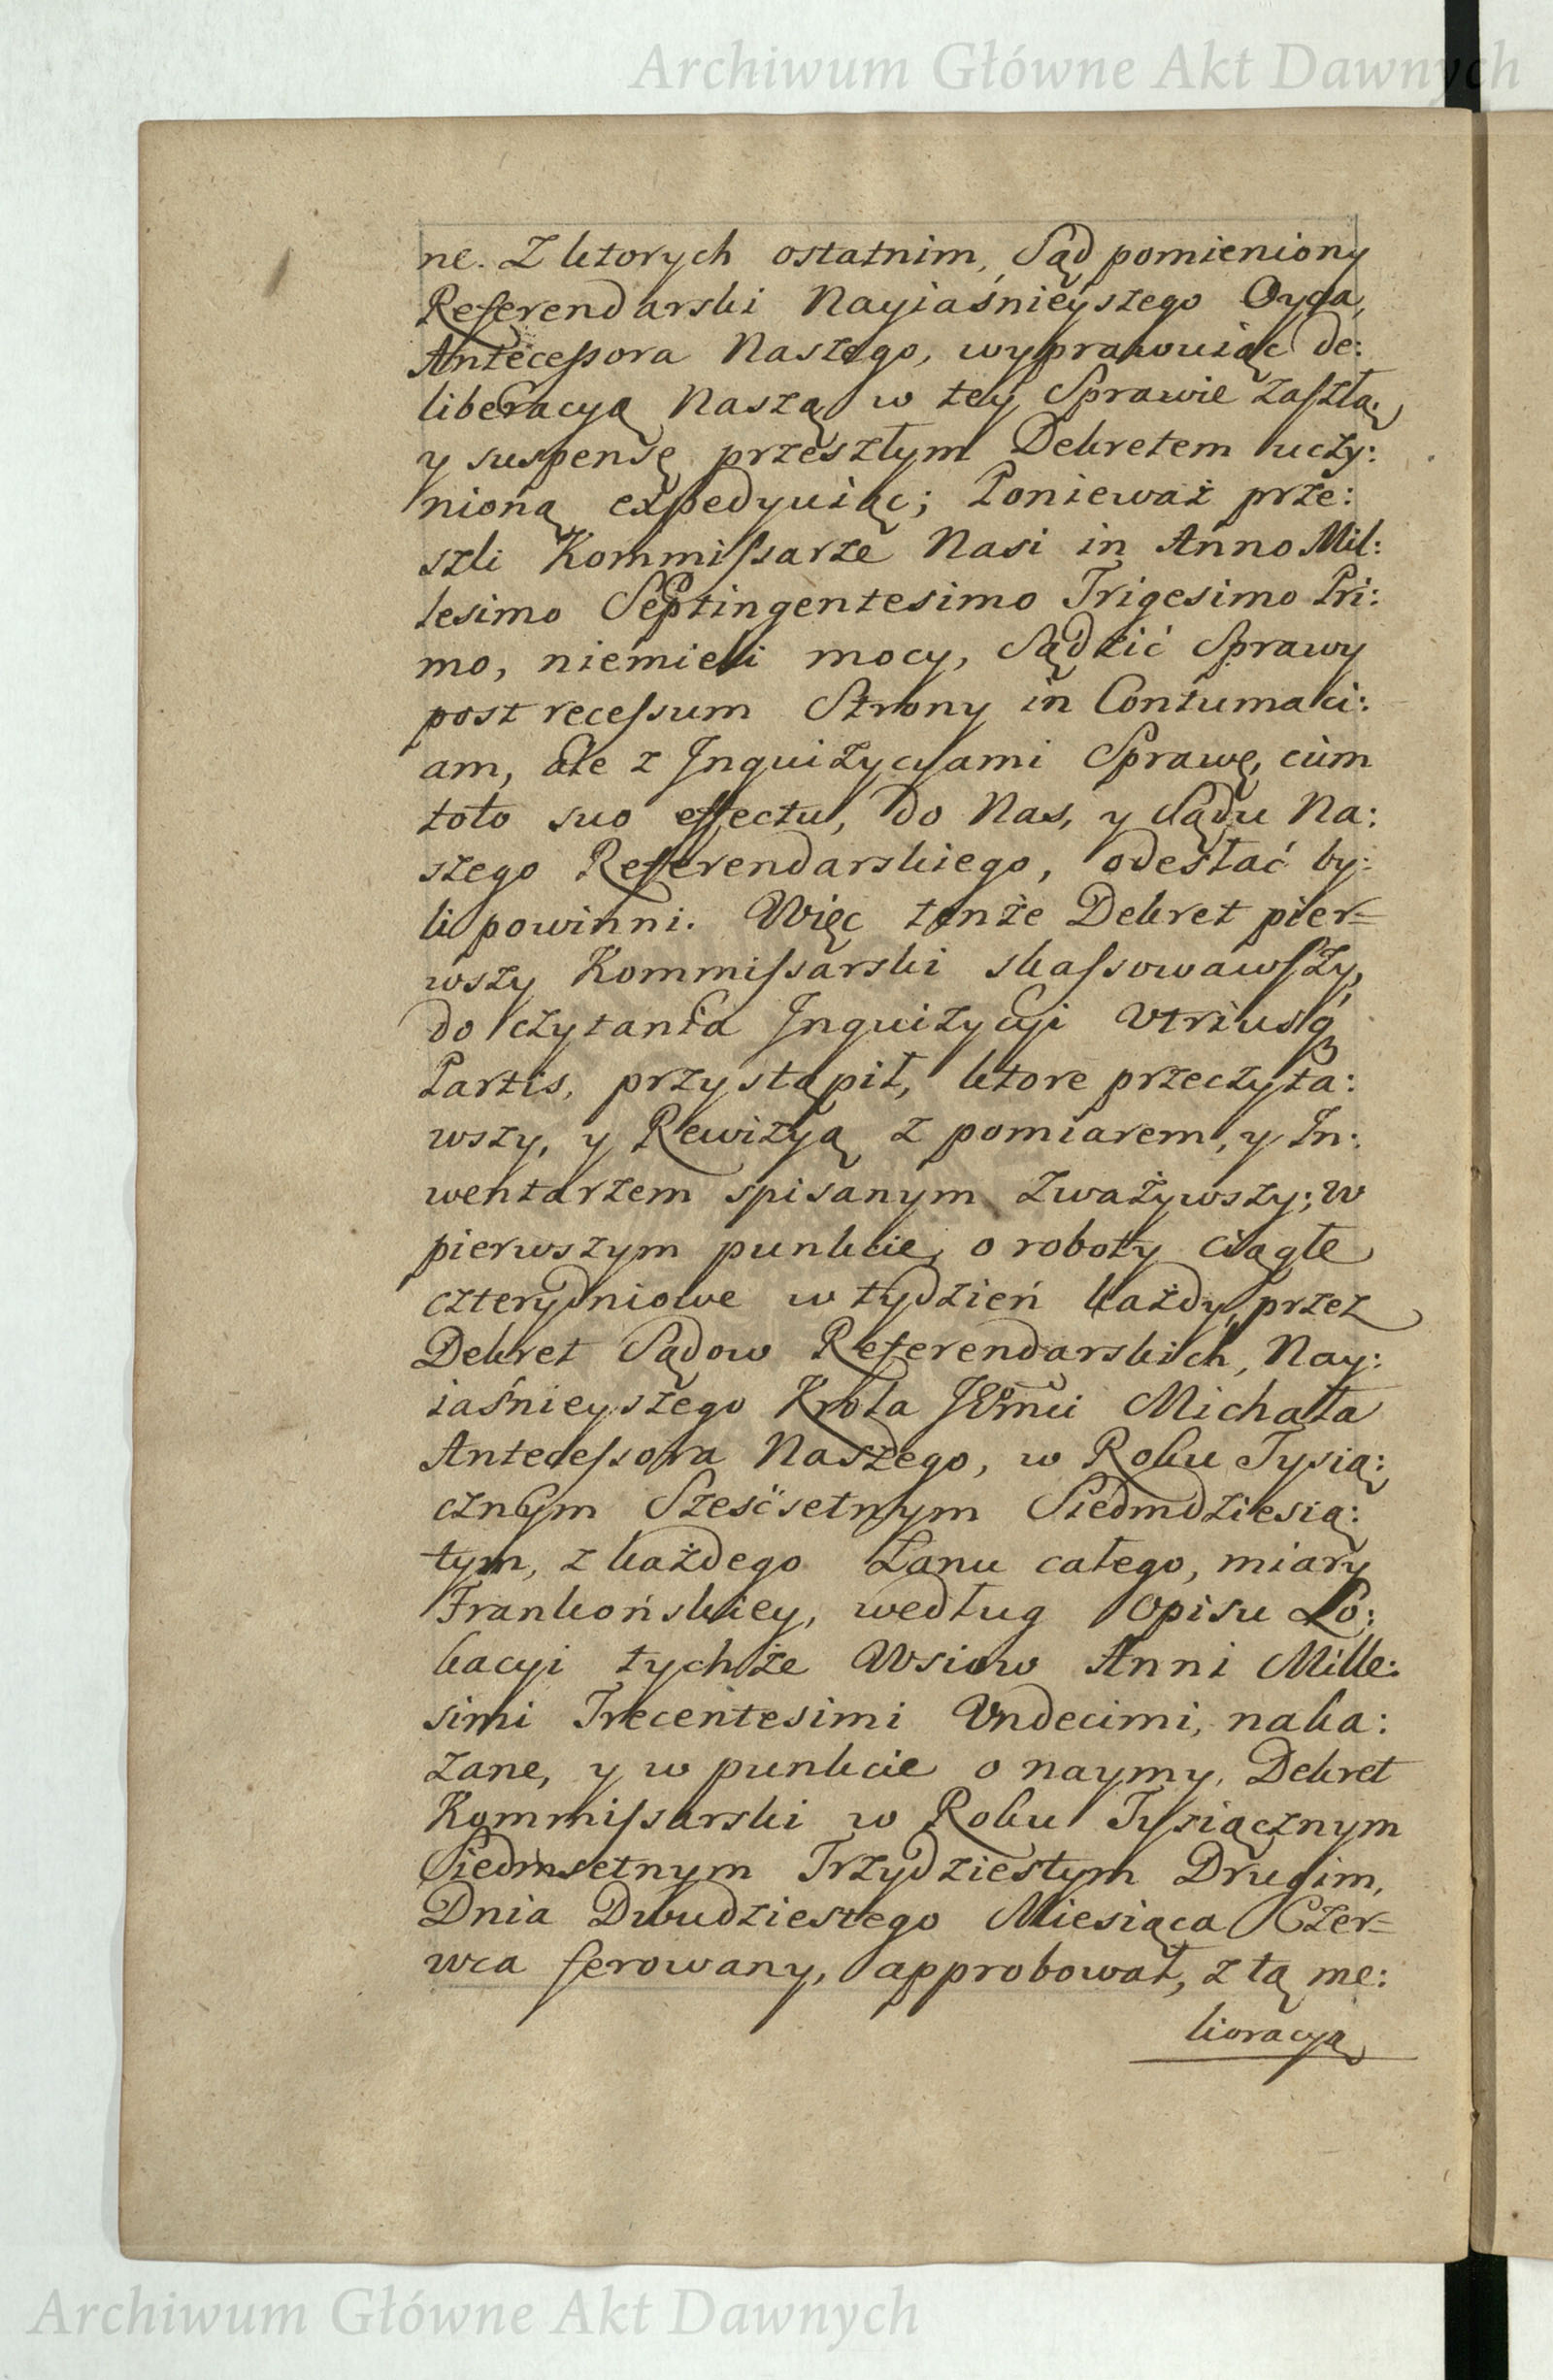 Archiwum Główne Akt Dawnych
ne. Z ktorych ostatnim, Sąd pomieniony
Referendarski Nayiaśnieyszego Oyca,
Antecessora Naszego, wyprawuiąc de:
liberacyą Naszą w tey Sprawie zaszłą,
y suspensę przeszłym Dekretem uczy:
nioną expedyuiąc; Ponieważ prze:
szli Kommissarze Nasi in Anno Mil:
lesimo Septingentesimo Trigesimo Pri:
mo, niemieli mocy, Sądzić Sprawy
post recessum Strony in Contumaci:
am, ale z Inquizycyami Sprawę, cum
toto suo effectu, do Nas, y Sądu Na:
szego Referendarskiego, odesłać by:
li powinni. Więc tenże Dekret pier=
wszy Kommissarski skassowawszy,
do czytania Inquizycyi Utriusq
Partis, przystąpił, ktore przeczyta:
wszy, y Rewizyą z pomiarem, y In:
wentarzem spisanym zważywszy; w
pierwszym punkcie, o roboty ciągłe
czterydniowe w tydzień każdy, przez
Dekret Sądow Referendarskich, Nay:
iaśnieyszego Krola JEmci Michała
Antecessora Naszego, w Roku Tysią:
cznym Sześćsetnym Siedmdziesią:
tym, z każdego Łanu całego, miary
Frankońskiey, według Opisu Lo:
kacyi tychże Wsiow Anni Mille:
simi Trecentesimi Undecimi, naka:
zane, y w punkcie o naymy, Dekret
Kommissarski w Roku Tysiącznym
Siedmsetnym Trzydziestym Drugim,
Dnia Dwudziestego Miesiąca Czer=
wca ferowany, approbował, z tą me:
lioracyą
Archiwum Główne Akt Dawnych